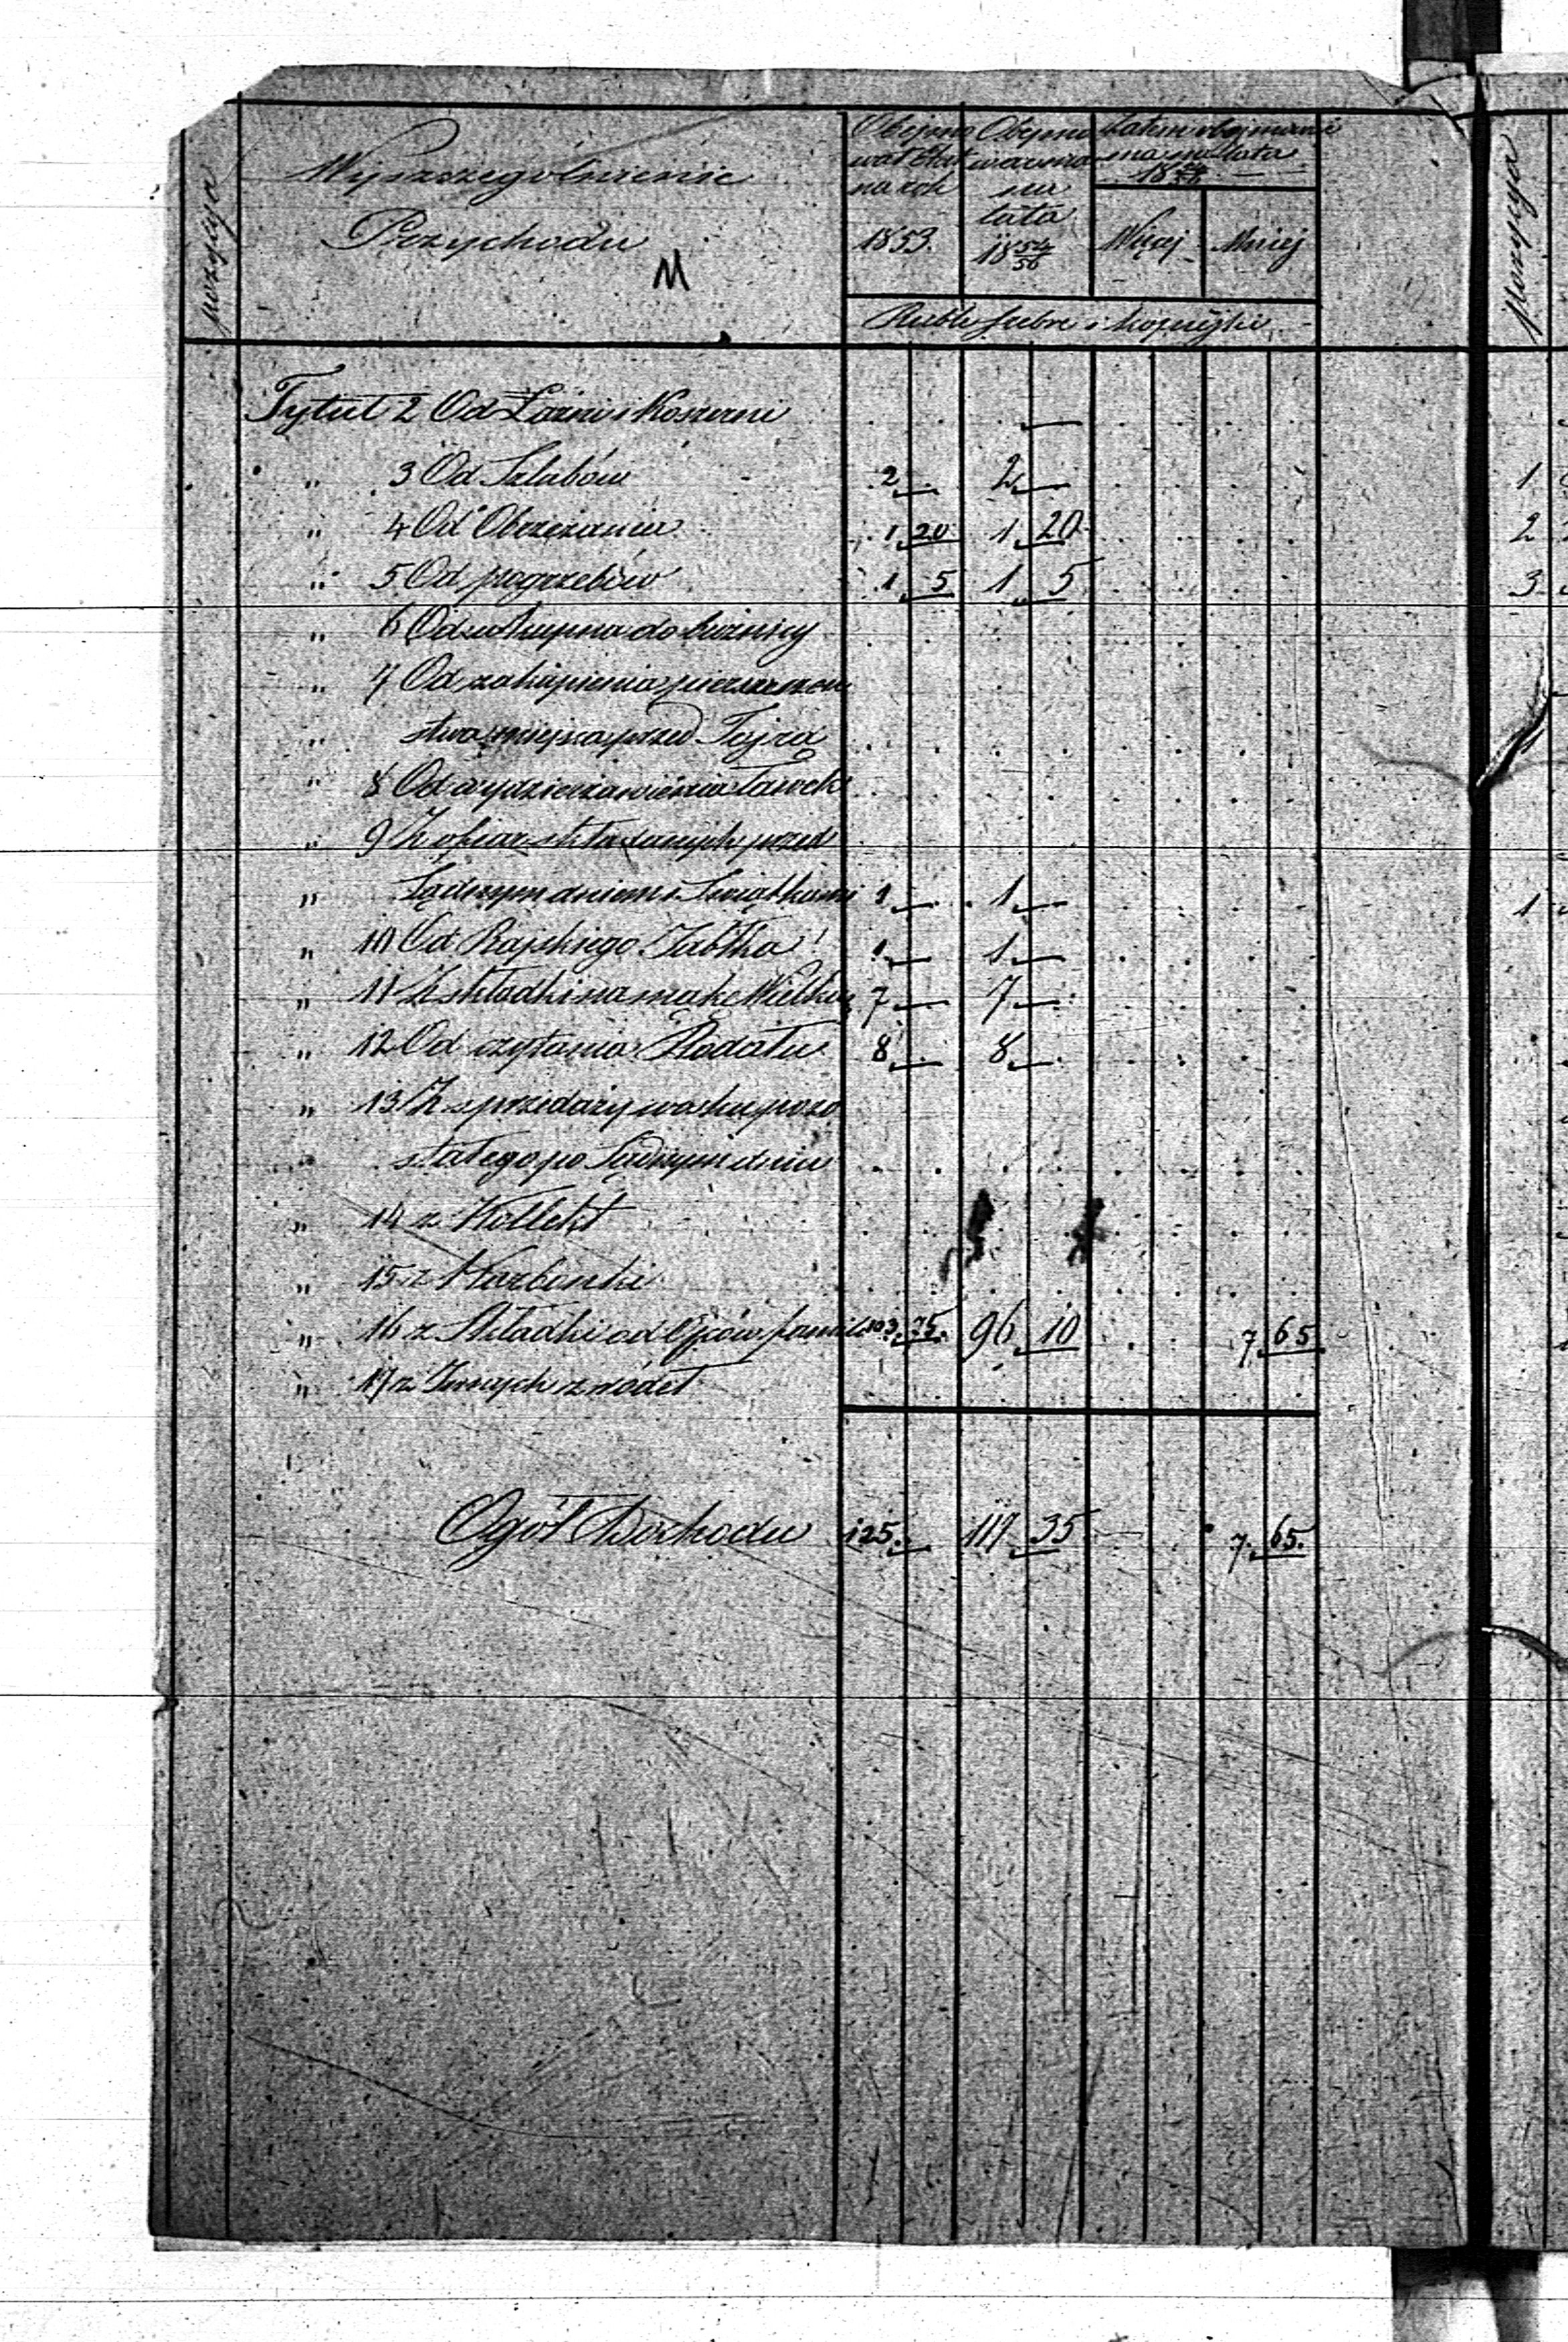 pozycya
Wyszczególnienie
Przychodu
Obejmo
wał Etat
na rok
1853.
Obejmo
na
lata
18 54/56
Zatem obejmować
ma na lata
Więcej
Mniej
Ruble srebre i kopiejki
Tytuł 2 Od Łaźni i Koszerni
„ 3 Od Szlubów 2 — 2 —
„ 4 Od Obrzezania 1 20 1 20
„ 5 Od pogrzebów 1 5 1 5
„ 6 Od wkupna do bużnicy
„ 7 Od zakupienia pierwszeń
„ stwa miejsca przed Tojrą
„ 8 Od wydzierżawienia ławek
„ 9 Z ofiar składanych przed
„ Sądnym dniem i Świątkami 1 — 1 —
„ 10 Od Rajskiego Jabłka 1 — 1 —
„ 11 Z składki na mąkę Wielkan 7 — 7 —
„ 12 Od czytania Rodału 8 — 8 —
„ 13 Z sprzedaży wosku pozo
„ stałego po Sądnym dniu
„ 14 z Kollekt
„ 15 z Karbonki
„ 16 z Składki od Ojców famil 103 75 96 10 7 65
„ 17 z Innych zródeł
Ogół Dochodu 125 — 117 35 7 65
pozycya
1
2
3
1